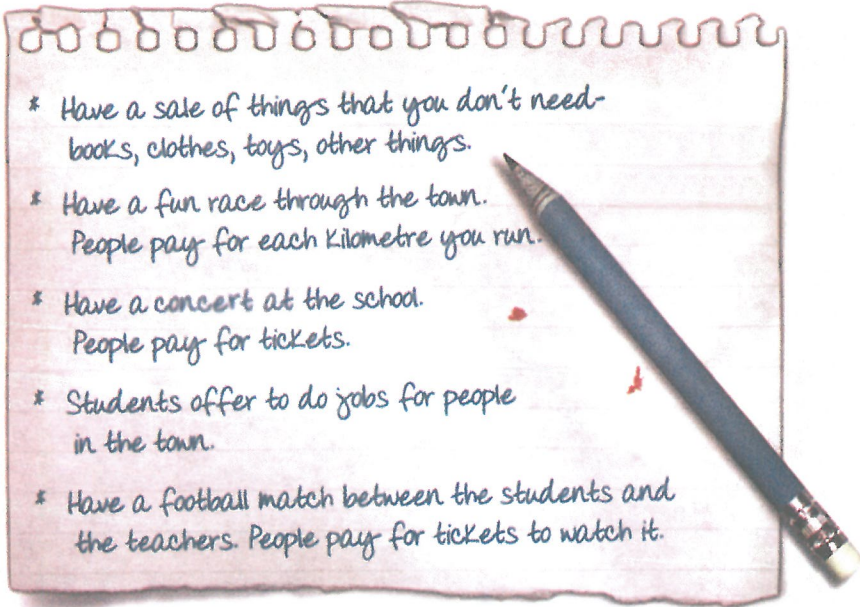 * Have a sale of things that you don't need-
books, clothes, toys, other things.
* Have a fun race through the town.
People pay for each kilometre you run.
* Have a concert at the school.
People pay for tickets.
* Students offer to do jobs for people
in the town.
* Have a football match between the students and
the teachers. People pay for tickets to watch it.